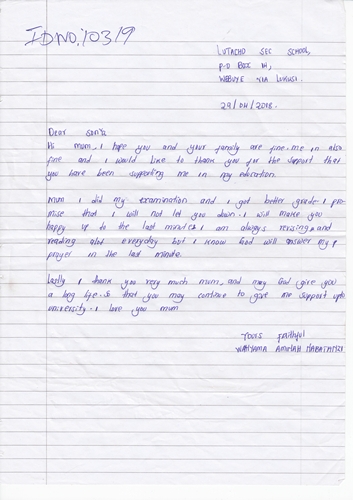 ID NO; 10319
LUTACHO SEC SCHOOL,
P-O BOX 114,
WEBUYE VIA LUKUSI.
29/04/2018.
Dear Sonya
Hi mum, I hope you and your family are fine. me, in also
fine and I would like to thank you for the support that
you have been supporting me in my education.
Mum I did my examination and I got better grade. I pro-
mise that I will not let you down. I will make you
happy up to the last minutes I am always revising, and
reading alot everyday but I know God will answer my
prayer in the last minute.
Lastly I thank you very much mum, and may God give you
a long life. So that you may continue to give me support upto
university. I love you mum
Yours faithful
WANYAMA AMINAH